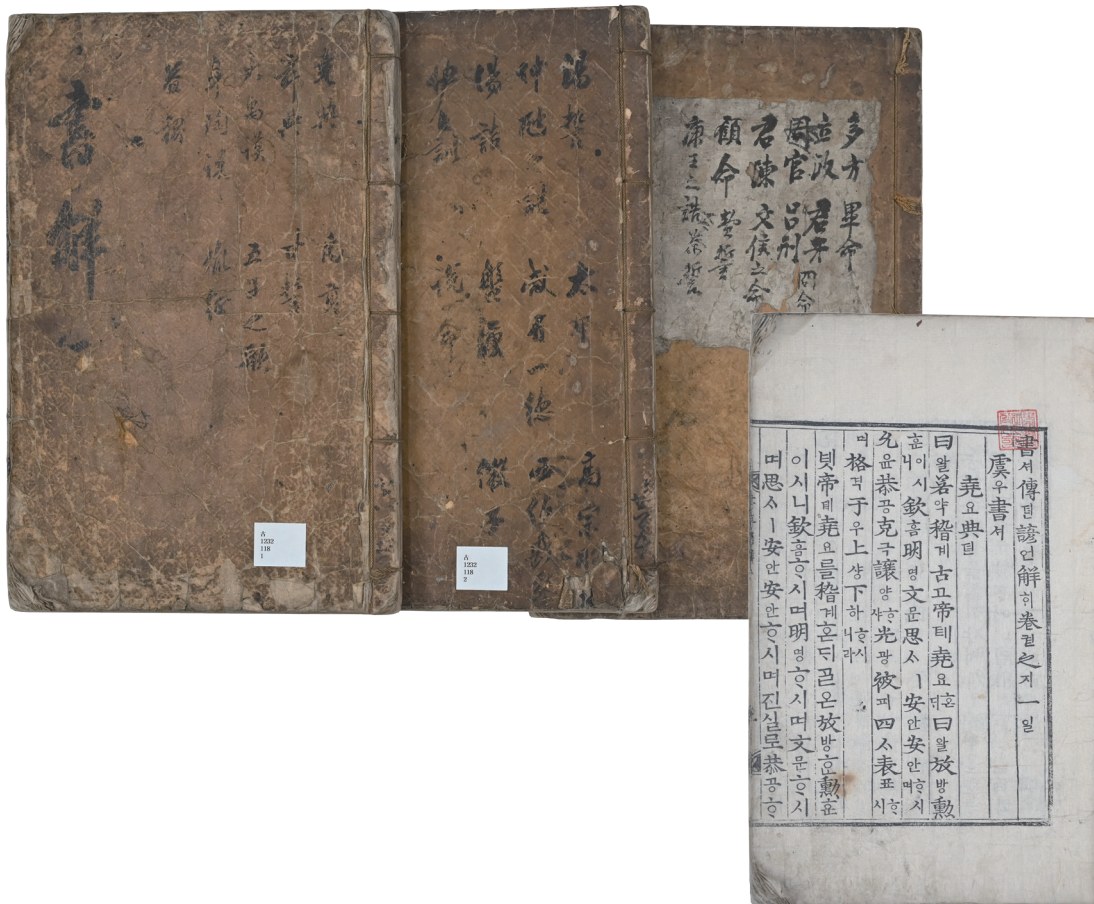 書觧 一
堯典 禹貢
舜典 甘誓
大禹謨 五子之歌
皐陶謨 胤征
益稷
A
1232
118
1
湯誓 太甲 高宗肜日
仲虺之誥 咸有一德 西伯
湯誥 盤庚 微子
伊訓 說命
A
1232
118
2
多方 畢命
立政 君牙 冏命
周官 呂刑
君陳 文侯之命
顧命 費誓
康王之誥 秦誓
書셔傳뎐諺언觧ᄒᆡ卷권之지一일
虞우書셔
堯요典뎐
曰왈若약稽계古고帝뎨堯요혼ᄃᆡ曰왈放방勳
훈이시니欽흠明명文문思ᄉᆞㅣ安안安안ᄒᆞ시며
允윤恭공克극讓양ᄒᆞ샤光광被피四ᄉᆞ表표ᄒᆞ시
며格격于우上샹下하ᄒᆞ시니라
녯帝뎨堯요를稽계혼ᄃᆡᄀᆞᆯ온放방ᄒᆞᆫ勳훈
이시니欽흠ᄒᆞ시며明명ᄒᆞ시며文문ᄒᆞ시
며思ᄉᆞㅣ安안安안ᄒᆞ시며진실로恭공ᄒᆞ